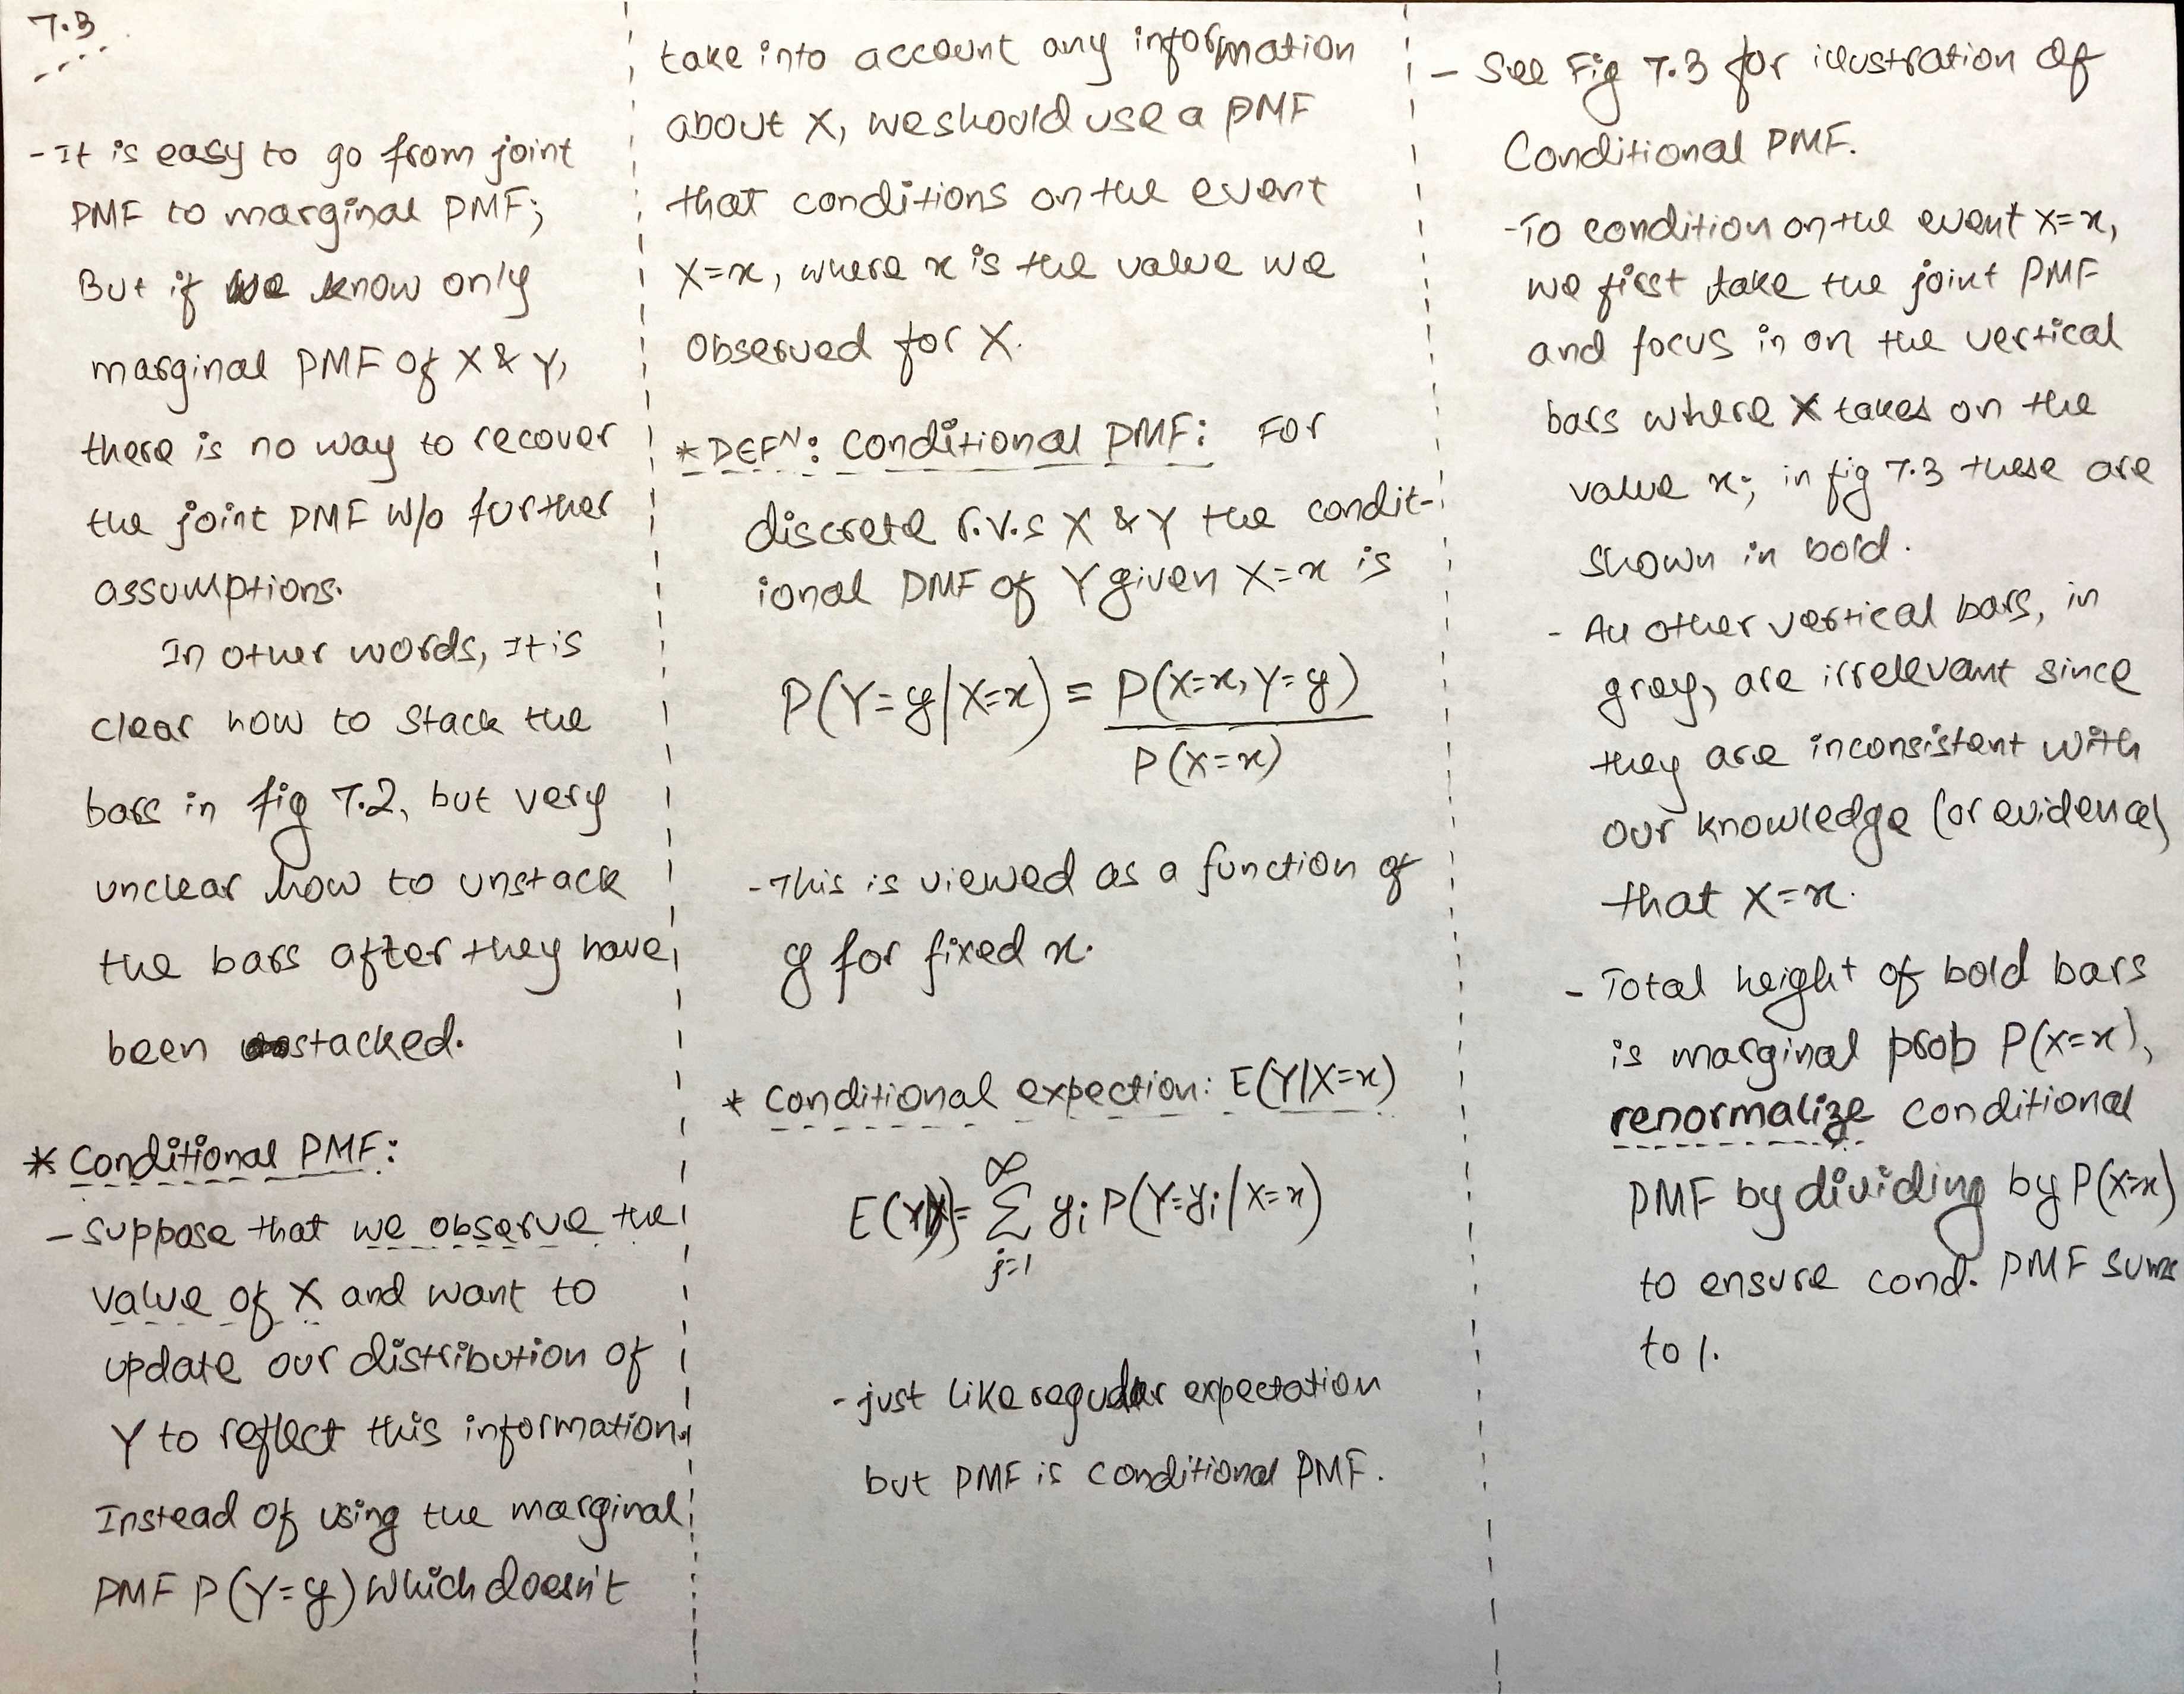 7.3
- It is easy to go from joint
PMF to marginal PMF;
But if we know only
marginal PMF of X & Y,
there is no way to recover
the joint PMF w/o further
assumptions.
In other words, It is
clear how to stack the
bars in fig 7.2, but very
unclear how to unstack
the bars after they have
been stacked.
* Conditional PMF:
- Suppose that we observe the
value of X and want to
update our distribution of
Y to reflect this information.
Instead of using the marginal
PMF P(Y=y) which doesn't
take into account any information
about X, we should use a PMF
that conditions on the event
X=x, where x is the value we
observed for X.
* DEFN: Conditional PMF: For
discrete r.v.s X & Y the condit-
ional PMF of Y given X=x is
P(Y=y|X=x) = P(X=x,Y=y)
P(X=x)
- This is viewed as a function of
y for fixed x.
* Conditional expection: E(Y|X=x)
E( )= ∞∑j=1 yi P(Y=yi|X=x)
- just like regular expectation
but PMF is conditional PMF.
- See Fig 7.3 for illustration of
Conditional PMF.
- To condition on the event X=x,
we first take the joint PMF
and focus in on the vertical
bars where X takes on the
value x; in fig 7.3 these are
shown in bold.
- All other vertical bars, in
gray, are irrelevant since
they are inconsistent with
our knowledge (or evidence)
that X=x.
- Total height of bold bars
is marginal prob P(X=x),
renormalize conditional
PMF by dividing by P(X=x)
to ensure cond. PMF sums
to 1.